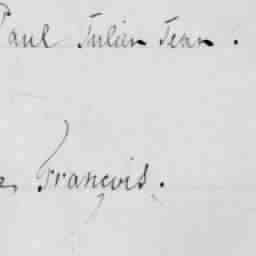 Paul Julien Jean.
François.